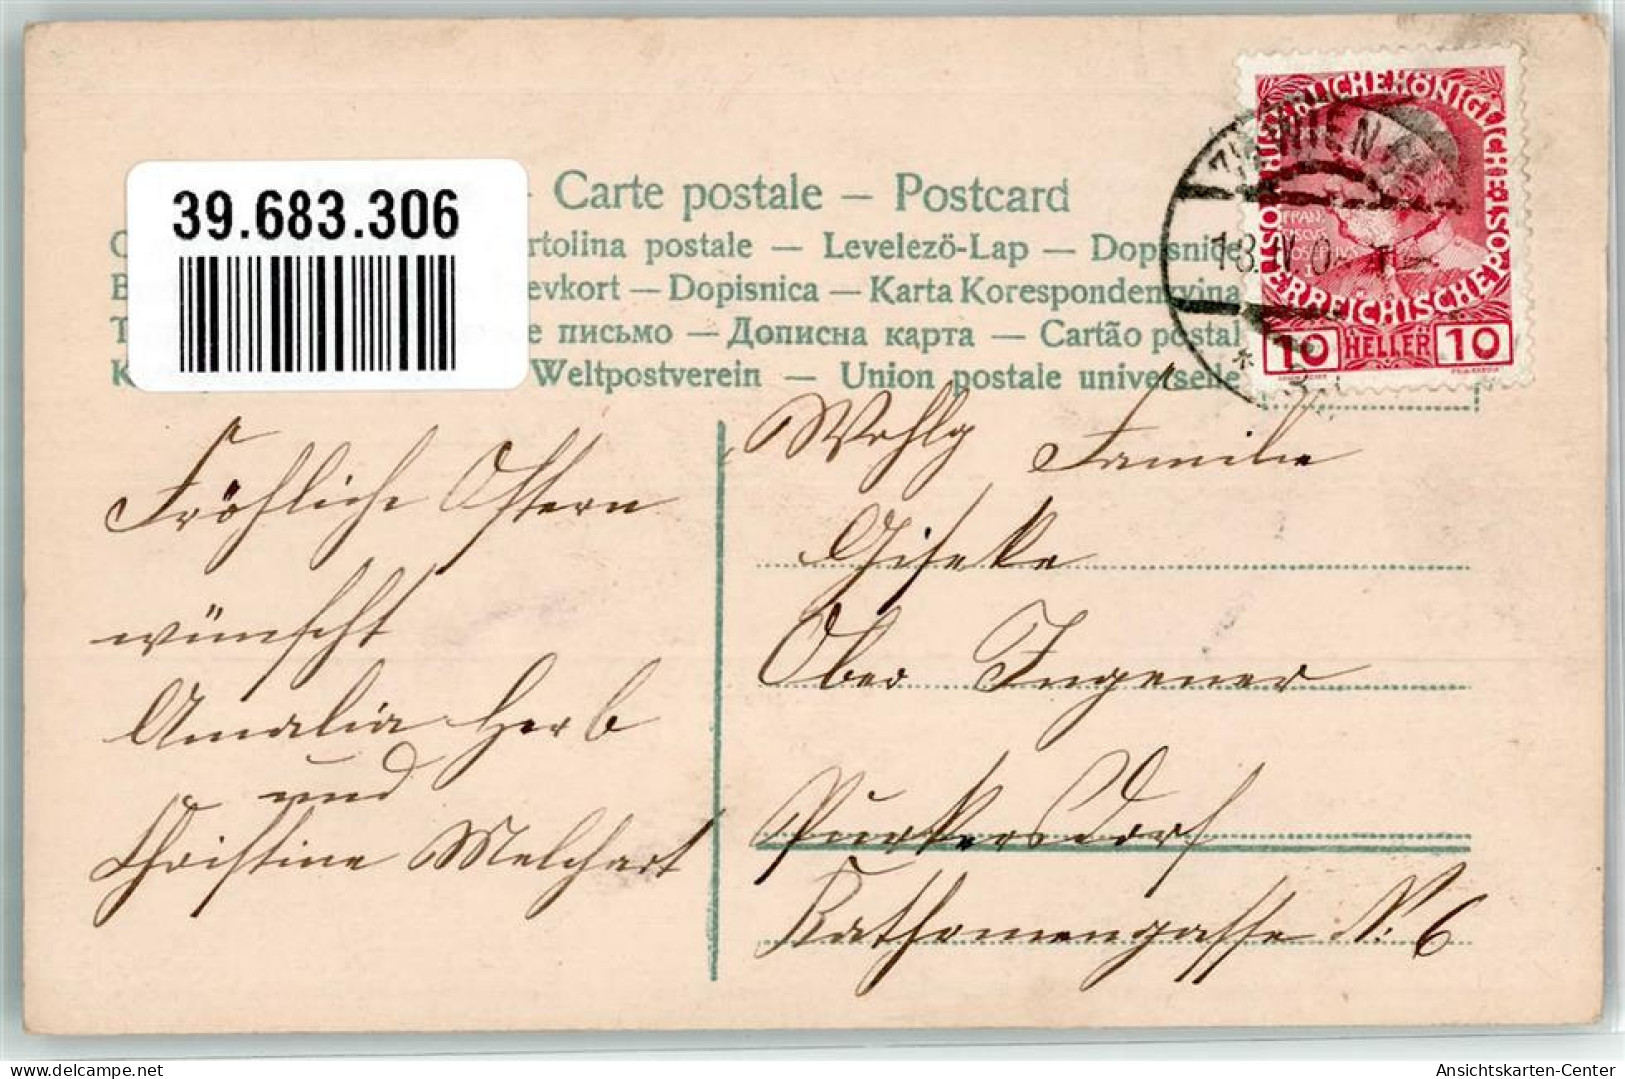 39.683.306
Carte postale – Postcard
rtolina postale – Levelezö-Lap – Dopisnice
evkort – Dopisnica – Karta Korespondencyjna
e письмо – Дописна карта – Cartão postal
Weltpostverein – Union postale universelle
ÖSTERREICHISCHE POST
10 HELLER 10
WIEN
18. IV. 0
Fröhliche Ostern
wünscht
Amalia Herb
und
Christine Melchart
Wohlg Familie
Giseke
Ober Ingener
Purkersdorf
N: 6
delcampe.net
Ansichtskarten-Center